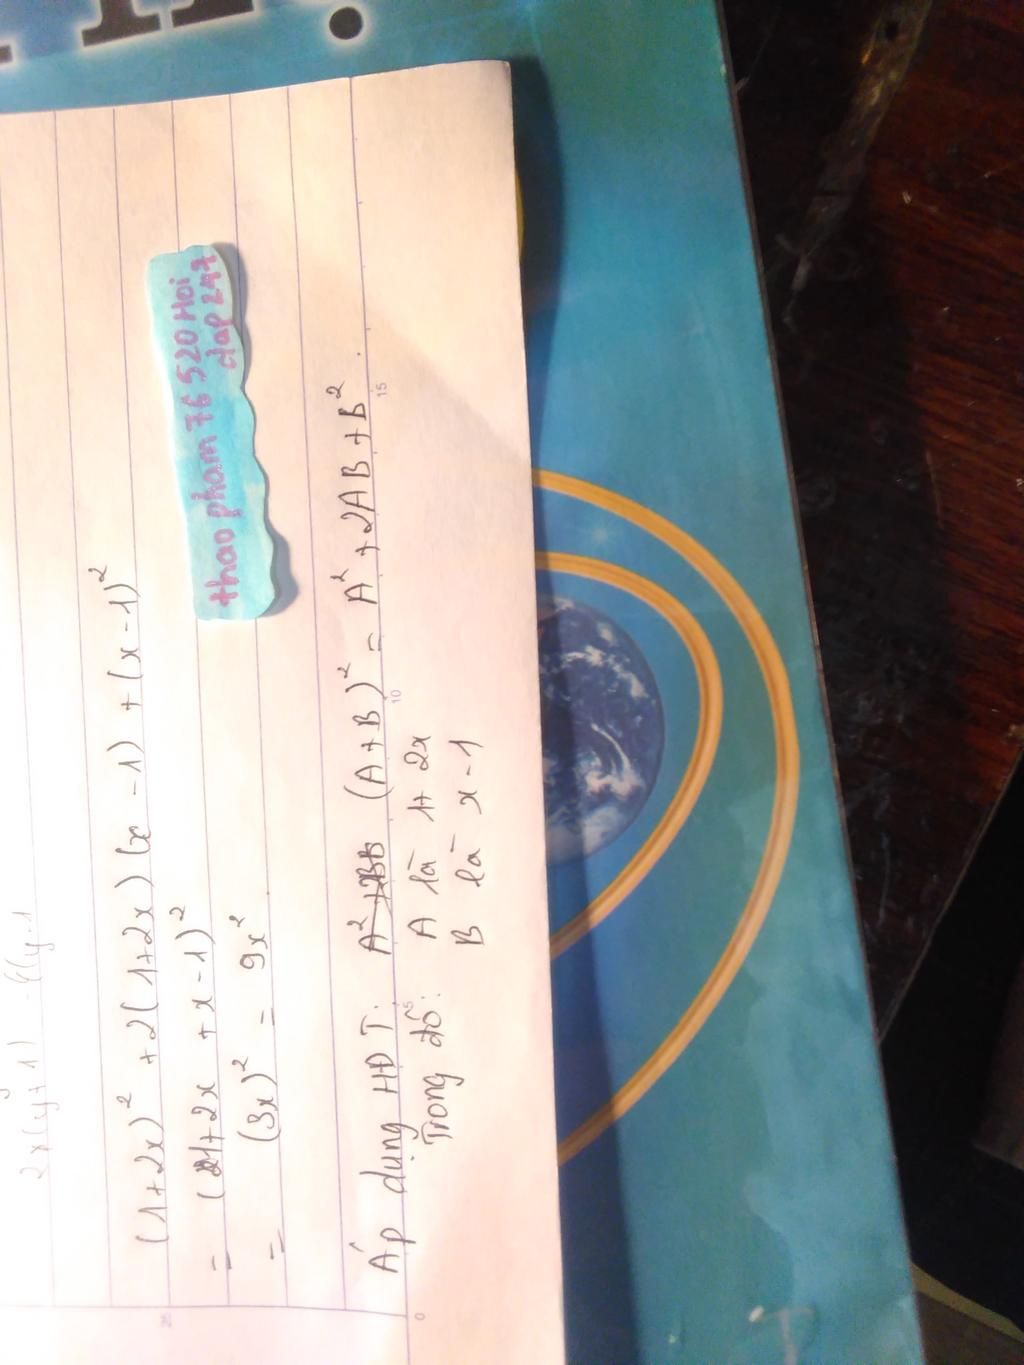 (1+2x)² + 2(1+2x)(x-1) + (x-1)²
= (1+2x + x-1)²
= (3x)² = 9x²
thao pham 76 520 Hoi
dap 247
Áp dụng HĐT: (A+B)² = A² + 2AB + B²
Trong đó: A là 1+2x
B là x-1
15
10
5
0